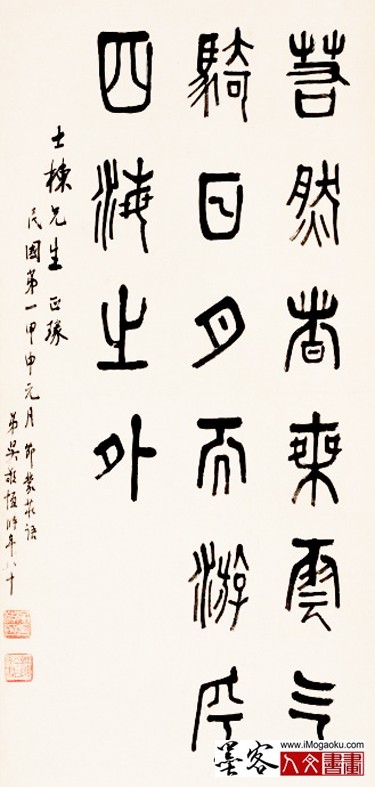 若然者乘雲气
騎日月而游乎
四海之外
士棟先生正
民國第一甲申元月節蒙莊語
弟吳敬恆時年八十
墨客
www.iMogaoku.com
人文書畫